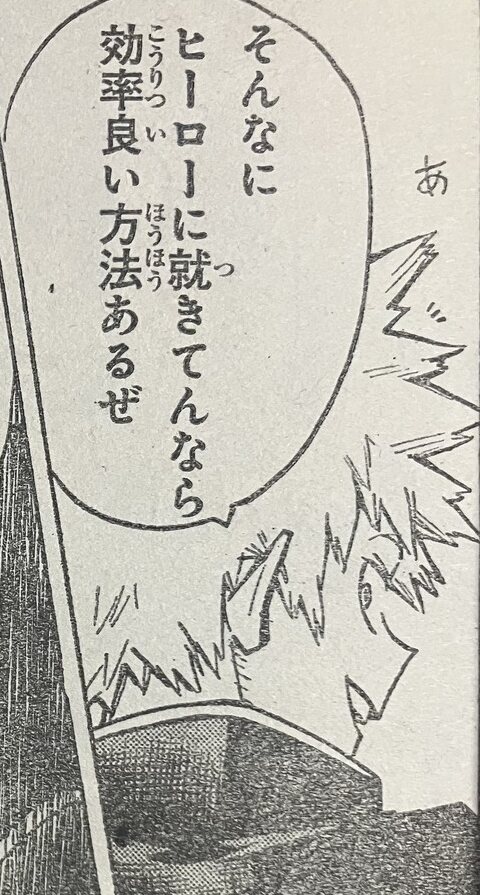 あ
そんなに
ヒーローに就きてんなら
効率良い方法あるぜ